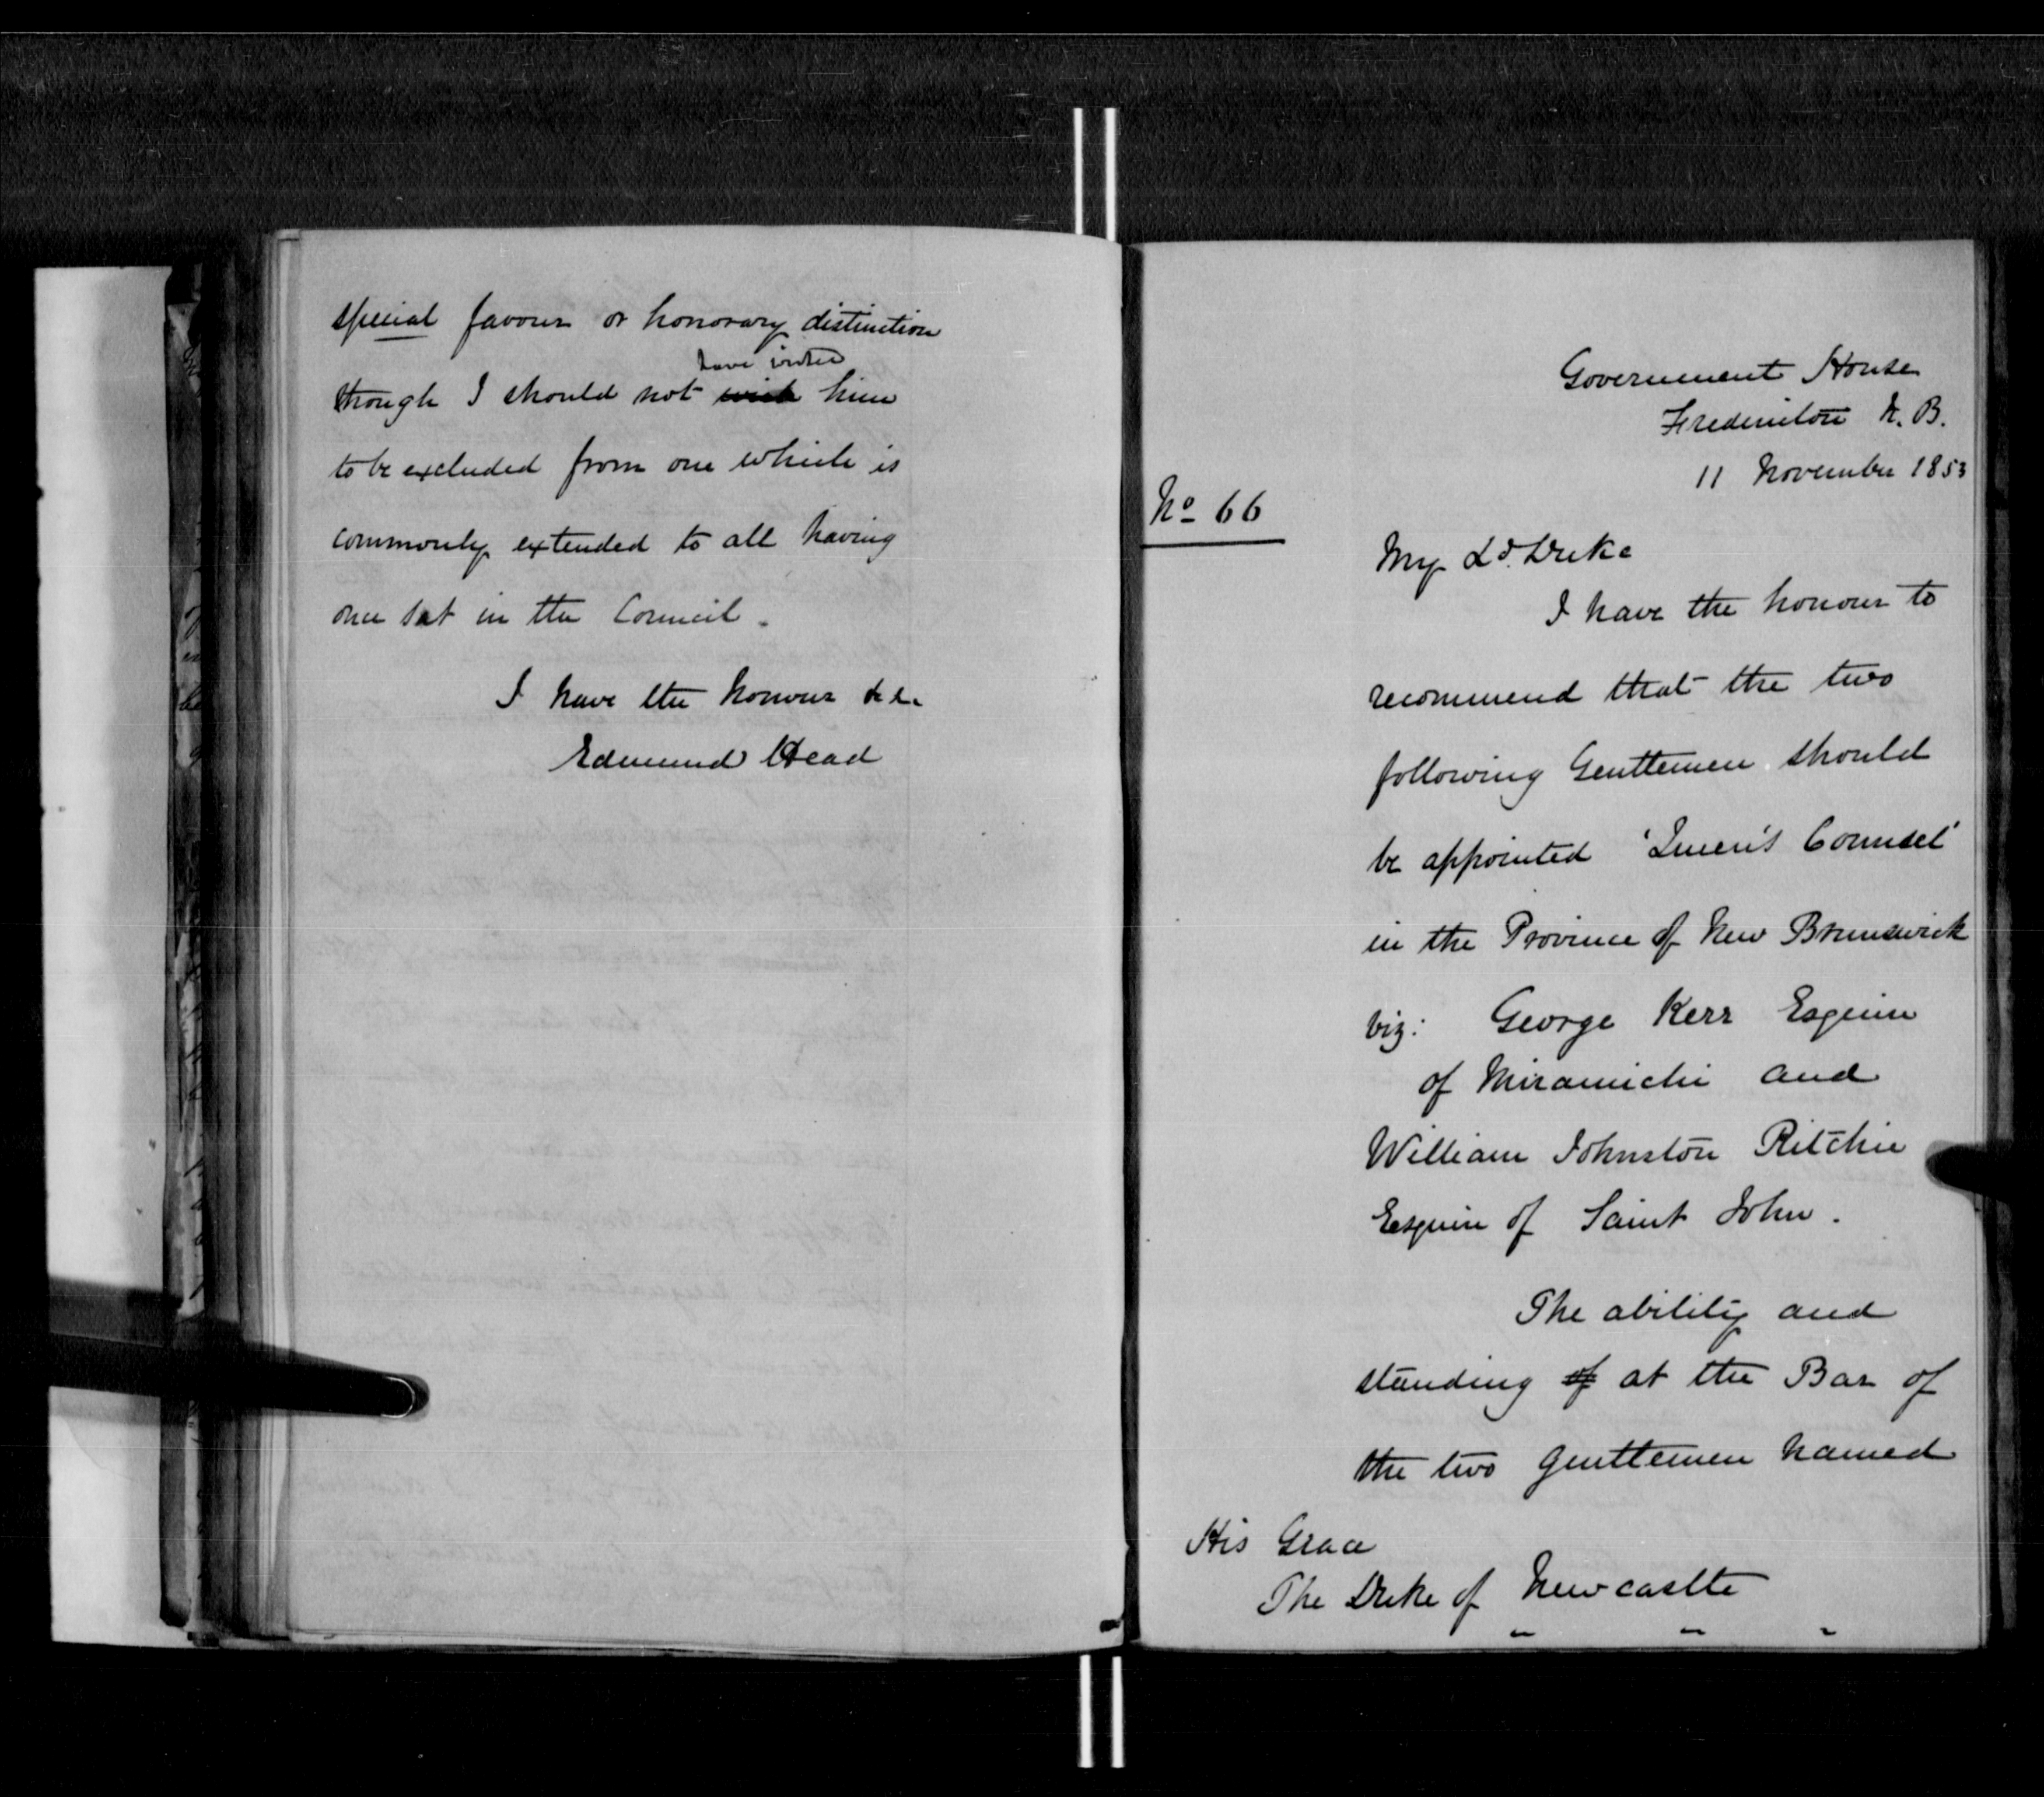 special favour or honorary distinction
have wished
though I should not wish him
to be excluded from one which is
commonly extended to all having
once sat in the Council.
I have the honour &c.
Edmund Head
Government House
Fredericton N. B.
11 November 1853
No 66
My Ld. Duke
I have the honour to
recommend that the two
following Gentlemen should
be appointed 'Queen's Counsel'
in the Province of New Brunswick
viz: George Kerr Esquire
of Miramichi and
William Johnston Ritchie
Esquire of Saint John.
The ability and
standing of at the Bar of
the two gentlemen named
His Grace
The Duke of Newcastle